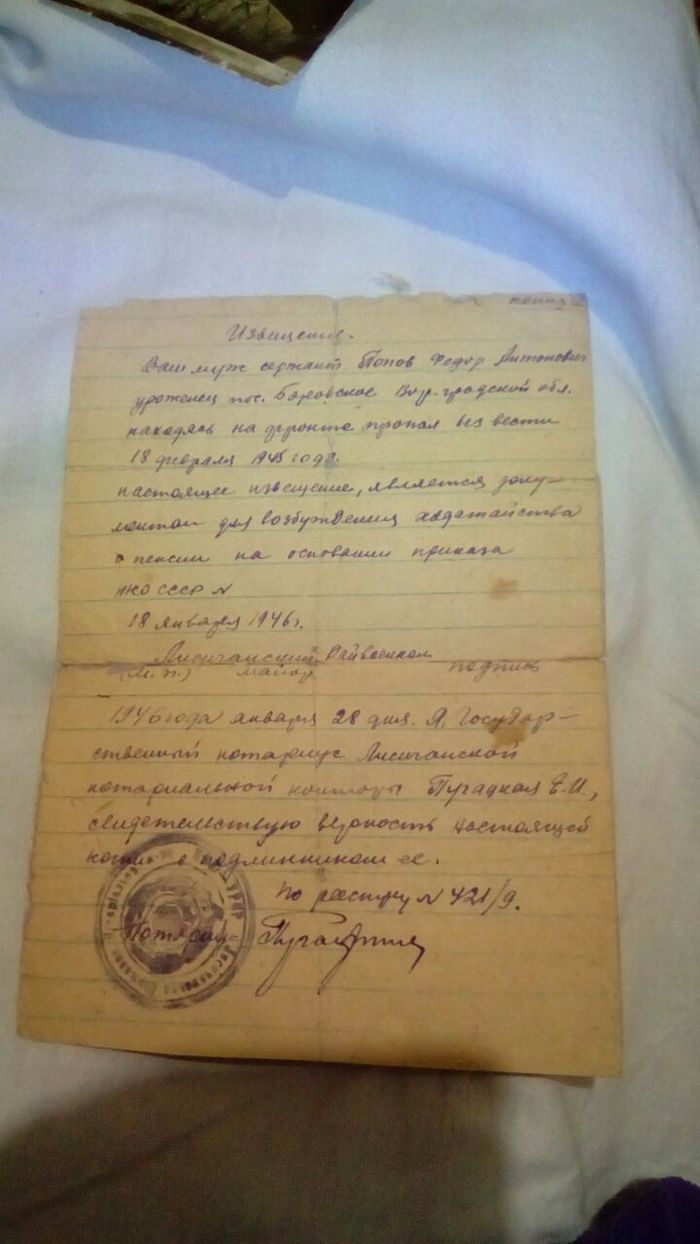 копия
Извещение.
Ваш муж сержант Попов Федор Антонович
уроженец пос. Боровское Вор-градской обл.
находясь на фронте пропал без вести
18 февраля 1945 года.
настоящее извещение, является доку-
ментом для возбуждения ходатайства
о пенсии на основании приказа
НКО СССР №
18 января 1946 г.
Лисичанский Райвоенком
(м. п.) майор подпись
1946 года января 28 дня. Я, Государ-
ственный нотариус Лисичанской
нотариальной конторы Е.И.,
свидетельствую верность настоящей
копии с подлинником ее.
По реестру № 421/9.